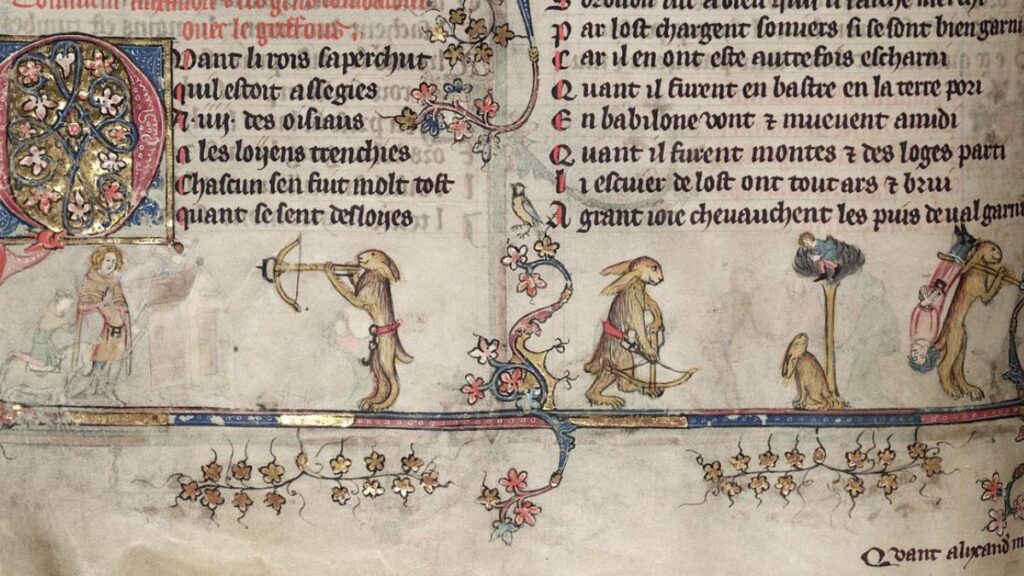 Quant li rois saperchut
quil estoit assegies
A .iiij. des oisiaus
a les loyens trenchies
Chascun sen fuit molt tost
quant se sent desloyes
P ar lost chargent somiers si se sont bien garni
C ar il en ont este autrefois escharni
Q uant il furent en bastre en la terre pori
E n babilone vont ⁊ muevent amidi
Q uant il furent montes ⁊ des loges parti
L i escuier de lost ont tout ars ⁊ brui
A grant ioie chevauchent les puis de val garni
Quant alixand